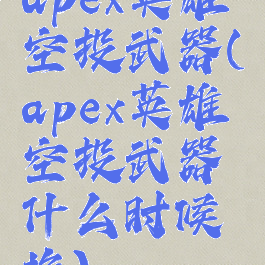 apex英雄
空投武器(
apex英雄
空投武器
什么时候
换)